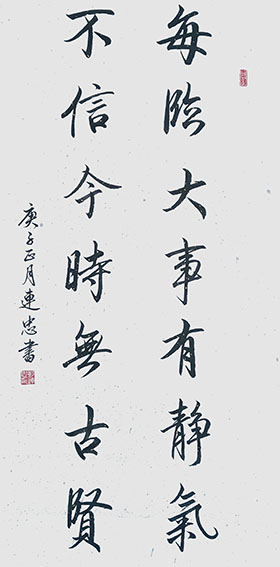 每臨大事有靜氣
不信今時無古賢
庚子正月連忠書